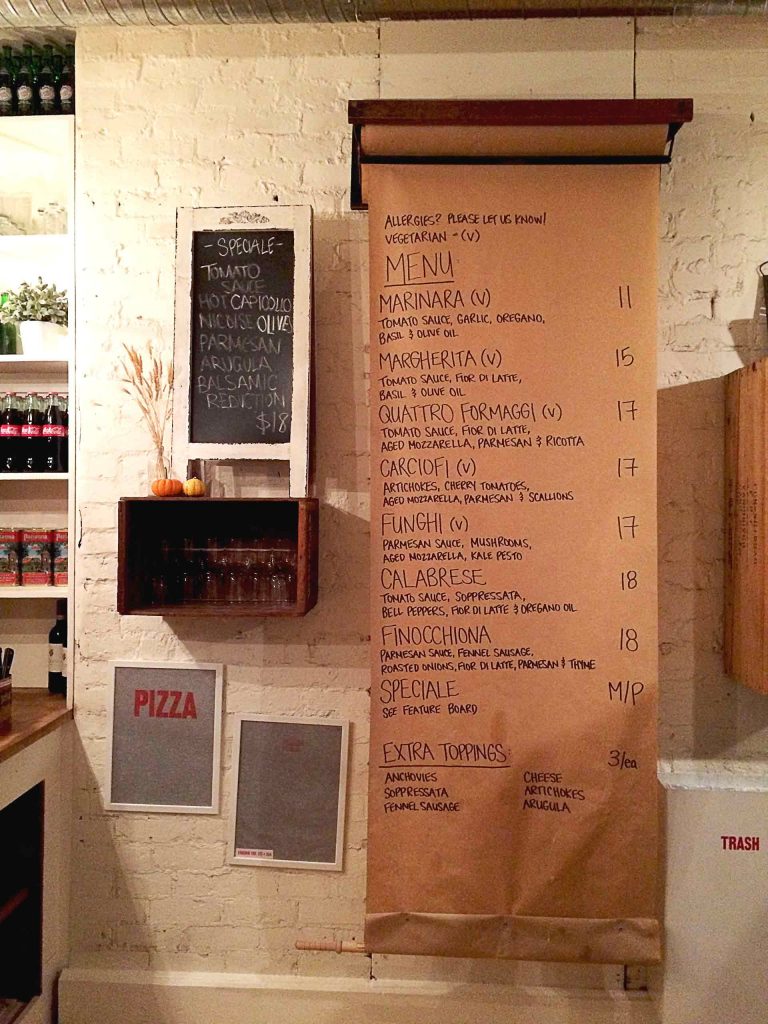 - SPECIALE -
TOMATO
SAUCE
HOT CAPICOLLO
NICOISE OLIVE
PARMESAN
ARUGULA
BALSAMIC
REDICTION
$18
ALLERGIES? PLEASE LET US KNOW!
VEGETARIAN - (V)
MENU
MARINARA (V) 11
TOMATO SAUCE, GARLIC, OREGANO,
BASIL & OLIVE OIL
MARGHERITA (V) 15
TOMATO SAUCE, FIOR DI LATTE,
BASIL & OLIVE OIL
QUATTRO FORMAGGI (V) 17
TOMATO SAUCE, FIOR DI LATTE,
AGED MOZZARELLA, PARMESAN & RICOTTA
CARCIOFI (V) 17
ARTICHOKES, CHERRY TOMATOES,
AGED MOZZARELLA, PARMESAN & SCALLIONS
FUNGHI (V) 17
PARMESAN SAUCE, MUSHROOMS,
AGED MOZZARELLA, KALE PESTO
CALABRESE 18
TOMATO SAUCE, SOPPRESSATA,
BELL PEPPERS, FIOR DI LATTE & OREGANO OIL
FINOCCHIONA 18
PARMESAN SAUCE, FENNEL SAUSAGE,
ROASTED ONIONS, FIOR DI LATTE, PARMESAN & THYME
SPECIALE M/P
SEE FEATURE BOARD
EXTRA TOPPINGS: 3/ea
ANCHOVIES CHEESE
SOPPRESSATA ARTICHOKES
FENNEL SAUSAGE ARUGULA
PIZZA
TRASH